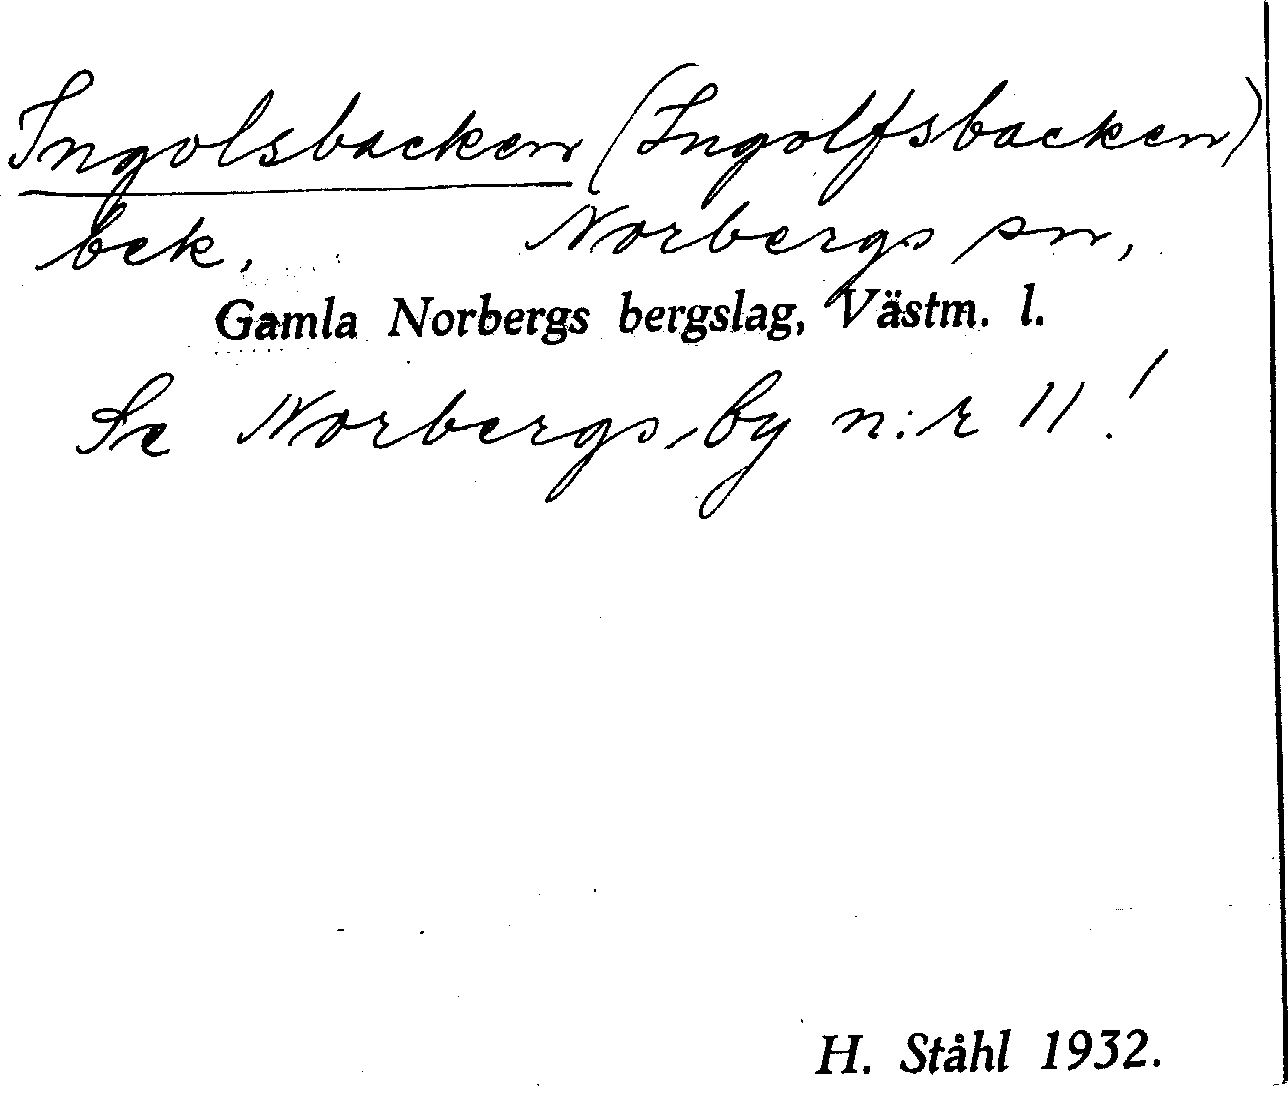 Ingolsbacken (Ingolfsbacken)
bek, Norbergs sn,
Gamla Norbergs bergslag, Västm. l.
Se Norbergsby n:r 11!
H. Ståhl 1932.